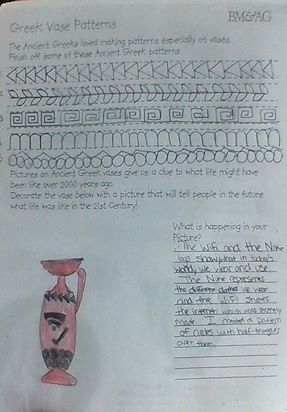 BM&AG
Greek Vase Patterns
The Ancient Greeks loved making patterns especially on vases.
Finish off some of these Ancient Greek patterns.
Pictures on Ancient Greek vases give us a clue to what life might have
been like over 2000 years ago.
Decorate the vase below with a picture that will tell people in the future
what life was like in the 21st Century!
What is happening in your
Picture?
The Wifi and the Nike
logo show what in today's
world we wear and use.
The Nike represents
the different clothes we wear
and the WiFi shows
the internet which was recently
made. I created a pattern
of circles with half-triangles
over them.